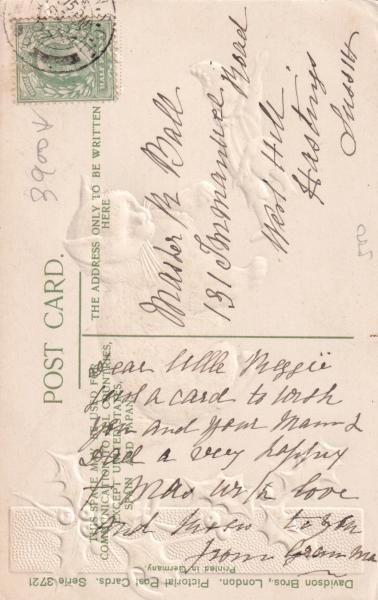 POST CARD.
THE ADDRESS ONLY TO BE WRITTEN
HERE
THIS SPACE MAY BE USED FOR
COMMUNICATION TO ALL COUNTRIES,
EXCEPT UNITED STATES,
SPAIN AND JAPAN.
Master R Ball
131 Immanuel Road
West Hill
Hastings
Sussex
Dear little Reggie
Just a card to wish
you and your Mam &
Dad a very happy
X Mas with love
and kisses to you
from Gran Ma
Davidson Bros., London. Pictorial Post Cards. Serie 3721
Printed in Germany.
3900x